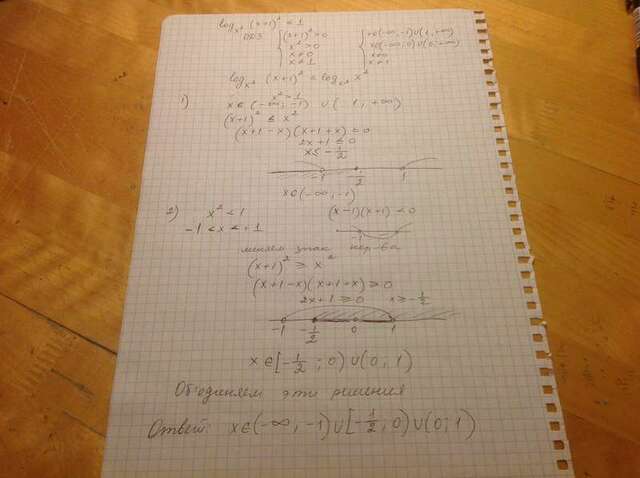 log_{x²} (x+1)² ≤ 1
ОДЗ { (x+1)² > 0
x² > 0
x ≠ 0
x ≠ 1
{ x∈(-∞, -1) ∪ (1, +∞)
x∈(-∞; 0) ∪ (0; +∞)
x≠0
x≠1
log_{x²} (x+1)² ≤ log_{x²} x²
1) x² > 1
x∈ (-∞, -1) ∪ ( 1, +∞)
(x+1)² ≤ x²
(x+1-x)(x+1+x) ≤ 0
2x+1 ≤ 0
x ≤ -1/2
-1 -1/2 1
x∈(-∞, -1)
2) x² < 1 (x-1)(x+1) < 0
-1 < x < +1 -1 1
меняем знак нер-ва
(x+1)² ≥ x²
(x+1-x)(x+1+x) ≥ 0
2x+1 ≥ 0 x ≥ -1/2
-1 -1/2 0 1
x∈[-1/2 ; 0) ∪ (0; 1)
Объединяем эти решения
Ответ: x∈(-∞, -1) ∪ [-1/2, 0) ∪ (0; 1)